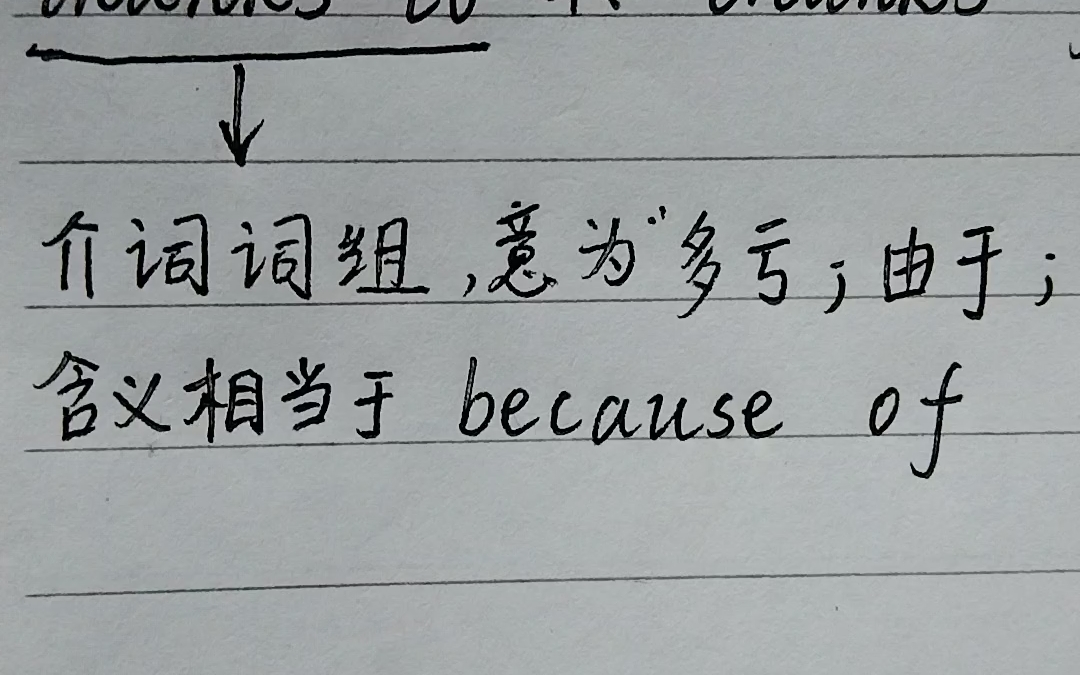 thanks to 不 thanks
介词词组,意为“多亏;由于;
含义相当于 because of